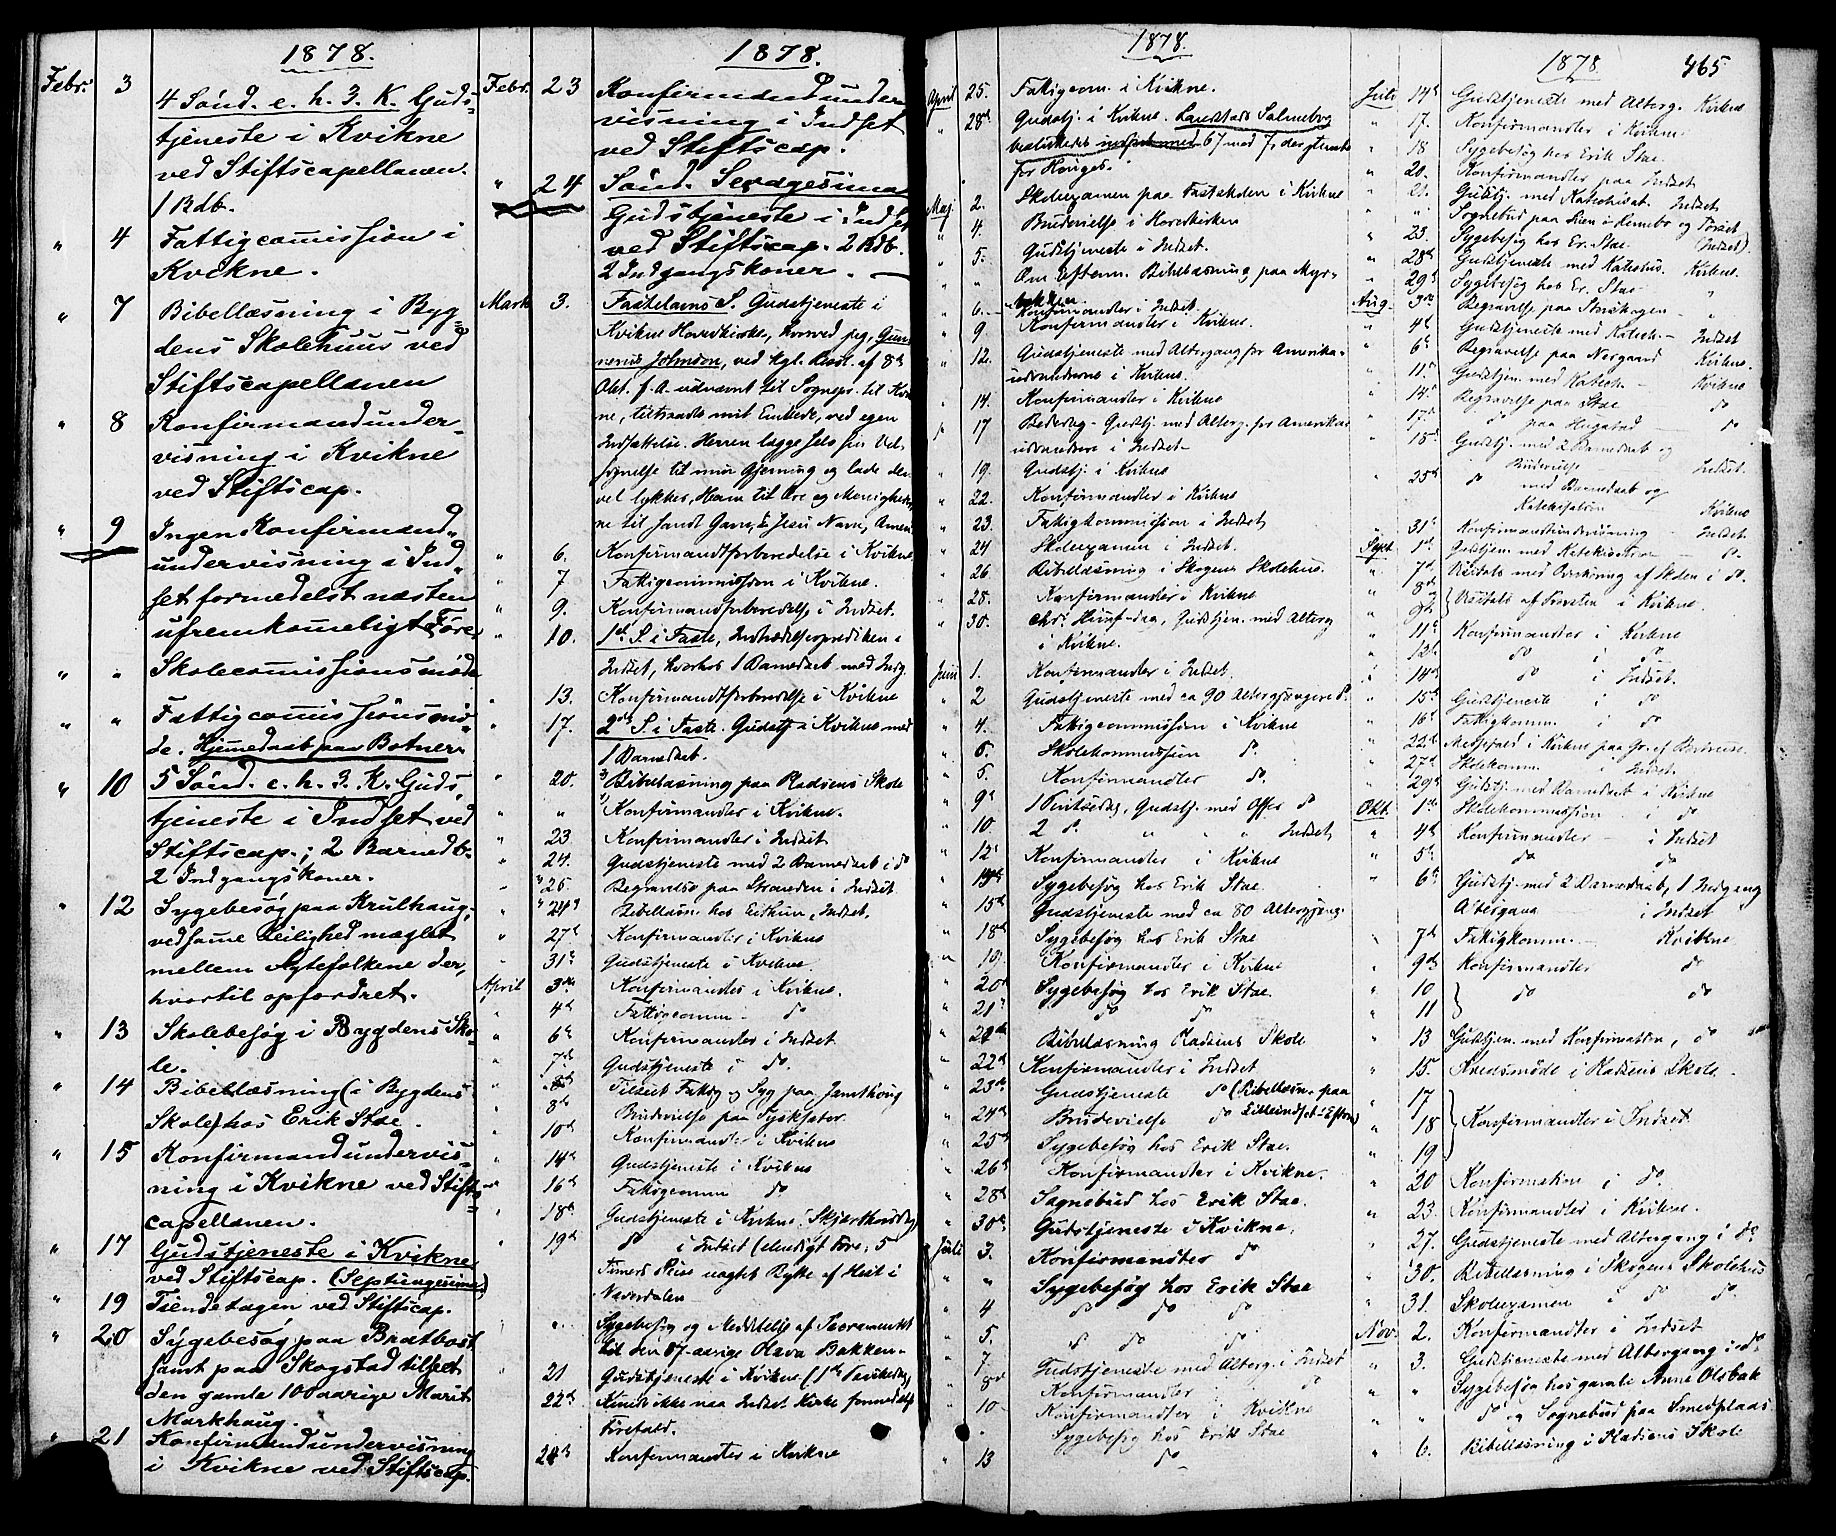 1878.
Febr. 3
4 Sönd. e. h. 3. K. Guds-
tjeneste i Kvikne
ved Stiftscapellanen.
1 Bdb.
" 4 Fattigcomission i
Kvikne.
" 7 Bibellæsning i Byg
dens Skolehuus ved
Stiftscapellanen
" 8 Konfirmandunder-
visning i Kvikne
ved Stiftscap.
" 9 Ingen Konfirmand-
undervisning i Ind-
set formedelst næsten
ufremkomeligt Före
" " Skolecomissionsmöde
" " Fattigcomissionsmö-
de. Hjemedaab paa Botner-
" 10 5 Sönd. e. h. 3. K. Guds-
tjeneste i Indset ved
Stiftscap.; 2 Barnedb.
2 Indgangskoner.
" 12 Sygebesög paa Krulhaug,
ved samme Leilighed mæglet
mellem Ægtefolkene der,
hvortil opfordret.
" 13 Skolebesög i Bygdens Sko-
le.
" 14 Bibellæsning (i Bygdens
Skole) hos Erik Stae.
" 15 Konfirmandundervis-
ning i Kvikne ved Stifts-
capellanen.
" 17 Gudstjeneste i Kvikne
ved Stiftscap. (Septuagesima)
" 19 Tiendetagen ved Stiftscap.
" 20 Sygebesög paa Bratbost
samt paa Skogstad til
den gamle 100 aarige Marit
Markhaug.
" 21 Konfirmandundervisning
i Kvikne ved Stiftscap.
1878.
Febr. 23 Konfirmandunder
visning i Indset
ved Stiftscap.
" 24 Sönd. Sexagesima
Gudstjeneste i Indset
ved Stiftscap. 2 Bdb.
2 Indgangskoner.
Marts 3. Fastelavns S. Gudstjeneste i
Kvikne Hovedkirke, hvorved jeg, Gun
nerius Johnson, ved kgl. Resol. af 8de
Okt. f. A. udnævnt til Sognepr. til Kvik
ne, tiltraadte mit Embede, ved egen
Indsættelse. Herren lægge selv sin Vel-
signelse til min Gjerning og lade den
vel lykkes, Ham til Ære og Menighede
ne til sandt Gavn, i Jesu Navn, Amen
" 6. Konfirmandtforberedelse i Kvikne
" 7 Fattigcommission i Kvikne.
" 9. Konfirmandforberedelse i Indset.
" 10. 1ste S. i Faste, Indtrædelsesprediken i
Indset, hvorhos 1 Barnedaab med Indg.
" 13. Konfirmandtforberedelse i Kvikne
" 17. 2den S. i Faste. Gudstj. i Kvikne med
1 Barnedaab.
" 20. Bibellæsning paa Pladsens Skole
" " Konfirmandter i Kvikne.
" 23 Konfirmandter i Indset
" 24. Gudstjeneste med 2 Barnedaab i do
" 25. Begravelse paa Stranden i Indset
" 24 Bibellæsn. hos Erikson, Indset.
" 27 Konfirmandter i Kvikne
" 31 Gudstjeneste i Kvikne
April 3die Konfirmandter i Kvikne.
" 4de Fattigcomm- do
" 6te Konfirmandter i Indset
" 7de Gudstjeneste i do.
" 8de Tilseet Fattig og Syg paa
" 8de Brudevielse paa
" 10de Konfirmandter i Kvikne
" 14de Gudstjeneste i Kvikne
" 16de Fattigcomm do
" 18de Gudstjeneste i Kvikne, Skjærthorsdag
" 19de do i Indset (elendigt Före, 5
Timers Reise uagtet Bytte af Hest i
Næverdalen
" " Sygebesög og Meddelelse af Sacramentet
til den 87-aarige Olava Bakken-
" 21 Gudstjeneste i Kvikne (1ste Paaskedag)
" 22de Kunde ikke naa Indset Kirke formedelst
Föret
" 24de Konfirmandter i Kvikne
1878.
April 25. Fattigcom. i Kvikne.
" 28de Gudstj. i Kvikne. Landstads Salmebog
besluttedes med 67 mod 7,
for Kongen.
Maj 2. Skoleexamen paa Fastskolen i Kvikne
" 4. Brudevielse i Hovedkirken
" 5. Gudstjeneste i Indset.
" " Om Efterm. Bibellæsning paa Myr-
bakken.
" 6. Konfirmandter i Indset.
" 9. Konfirmandter i Kvikne.
" 12. Gudstjeneste med Altergang for Amerika-
udvandrerne i Kvikne.
" 14. Konfirmandter i Kvikne
" 17 Bededag- Gudstj. med Alterg. for Amerika
udvandrere i Indset-
" 19. Gudstj. i Kvikne
" 22. Konfirmandter i Kvikne
" 23. Fattigkommission i Indset
" 24 Skoleexamen i Indset.
" 26. Bibellæsning i Skogens Skolehus.
" 28. Konfirmandter i Kvikne
" 30. Chr. Himf-dag, Gudstjen. med Alterg
i Kvikne.
Juni 1. Konfirmandter i Indset.
" 2 Gudstjeneste med ca 90 Altergjængere do.
" 4. Fattigcommission i Kvikne
" 6. Skolekommission do.
" 6. Konfirmandter do.
" 9de 1 Pintsedag, Gudstj. med Offer do
" 10. 2 do. " " " Indset
" 12 Konfirmandter i Kvikne
" Sygebesög hos Erik Stae.
" 15de Gudstjeneste med ca 80 Altergjæng.
" 18de Sygebesög hos Erik Stae
" 19. Konfirmandter i Kvikne
" 20de Sygebesög hos Erik Stae.
" 21 do do
" Bibellæsning Pladsens Skole
" 22de Konfirmandter i Indset
" 23de Gudstjeneste do (Bibellæsn. paa
" 24de Brudevielse do Lilleindset i Efterm)
" 25de Sygebesög hos Erik Stae.
" 26de Konfirmandter i Kvikne.
" 28de Sognebud hos Erik Stae.
" 30te Gudstjeneste i Kvikne.
Juli 3. Konfirmandter do
" " Sygebesög hos Erik Stae
" 4 do do do
" 5. do do do
" 7 Gudstjeneste med Alterg. i Indset
" 8de Konfirmandter do
" 10- Konfirmandter i Kvikne
" Sygebesög hos Erik Stae
" 13 do-
1878 465
Juli 14de Gudstjeneste med Alterg. Kvikne
" 17. Konfirmandter i Kvikne.
" 18 Sygebesög hos Erik Stae.
" 20. Konfirmandter paa Indset
" 21. Gudstj. med Katechisat. Indset
" " Sognebud paa Lien i Rennebo og (Indset)
" 23. Sygebesög hos Er. Stae
" 28de Gudstjeneste med Katechis. Kvikne.
" 29de Sygebesög hos Er. Stae "
Aug. 3die Begravelse paa "
" 4de Gudstjeneste med Katech.- Indset
" 6te Begravelse paa Norgaard Kvikne
" 11. Gudstjen. med Katech.- Kvikne
" 14. Begravelse paa Stae do
" 17. do paa Haugstad do
" 18de Gudstj. med 2 Barnedaab og
Brudevielse Indset.
" 25de do med Barnedaab og
Katekisation Kvikne
" 31te Konfirmandtundervisning - Indset
Sept. 1ste Gudstjen. med Katekisation - do.
" 7de Visitats med Overhöring af Skolen i do.
" 8de
" 9de } Visitats af Provsten i Kvikne.
" 11te Konfirmandter i Kvikne
" 12te do i do
" 14de do i Indset.
" 15de Gudstjeneste i do
" 16de Fattigkomm. i do
" 22de Messefald i Kvikne paa Gr. af
" 27de Skolekomm. i Indset.
" 29de Gudstjen. med Barnedaab i Kvikne
Okt. 1ste Skolekommission i do
" 4de Konfirmandter - i Indset
" 5te do do
" 6te Gudstj. med 2 Barnedaab, 1 Indgang
Altergang i Indset
" 7de Fattigkomm.- Kvikne
" 9de Konfirmandter do
" 10
11 } do do
" 13 Gudstjen. med Konfirmation, do
" 15. Kredsmöde i Pladsens Skole-
" 17
" 18
" 19 } Konfirmandter i Indset.
" 20 Konfirmation i do.
" 23. Konfirmandter i Kvikne.
" 27. Gudstjeneste med Altergang i do
" 30. Bibellæsning i Skogens Skolehus
" 31. Skoleexamen i do do.
Nov. 2. Konfirmandter i Indset
" 3. Gudstjeneste med Altergang i do
" " Sygebesög hos gamle Anne Olsbak
" " do og Sognebud paa Smedplads
" 6. Bibellæsning i Pladsens Skole